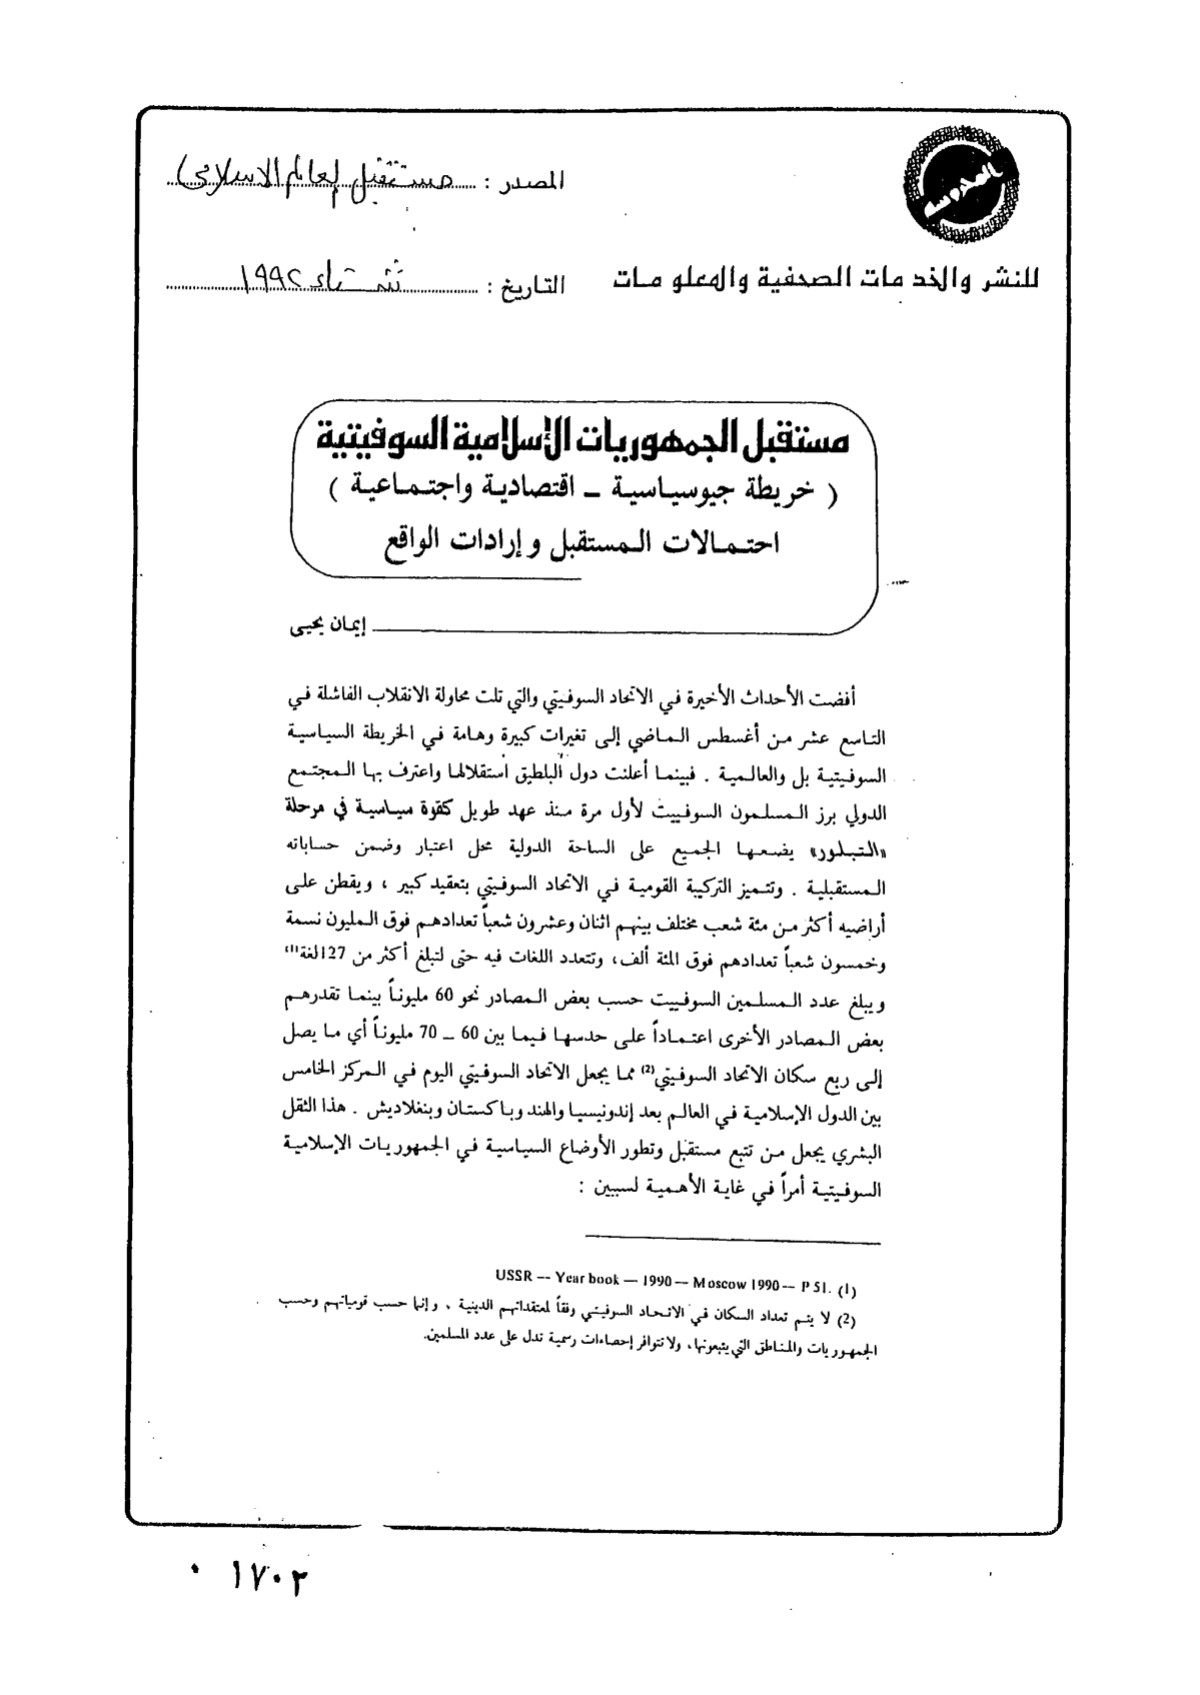 المصدر : مستقبل العالم الاسلامى
للنشر والخدمات الصحفية والمعلومات
التاريخ : شتاء ١٩٩٢
مستقبل الجمهوريات الإسلامية السوفيتية
( خريطة جيوسياسية ــ اقتصادية واجتماعية )
احتمالات المستقبل وإرادات الواقع
إيمان يحيى
أفضت الأحداث الأخيرة في الاتحاد السوفيتي والتي تلت محاولة الانقلاب الفاشلة في
التاسع عشر من أغسطس الماضي إلى تغيرات كبيرة وهامة في الخريطة السياسية
السوفيتية بل والعالمية . فبينما أعلنت دول البلطيق استقلالها واعترف بها المجتمع
الدولي برز المسلمون السوفييت لأول مرة منذ عهد طويل كقوة سياسية في مرحلة
«التبلور» يضعها الجميع على الساحة الدولية محل اعتبار وضمن حساباته
المستقبلية . وتتميز التركيبة القومية في الاتحاد السوفيتي بتعقيد كبير ، ويقطن على
أراضيه أكثر من مئة شعب مختلف بينهم اثنان وعشرون شعباً تعدادهم فوق المليون نسمة
وخمسون شعباً تعدادهم فوق المئة ألف، وتتعدد اللغات فيه حتى لتبلغ أكثر من 127 لغة(1)
ويبلغ عدد المسلمين السوفييت حسب بعض المصادر نحو 60 مليوناً بينما تقدرهم
بعض المصادر الأخرى اعتماداً على حدسها فيما بين 60 ــ 70 مليوناً أي ما يصل
إلى ربع سكان الاتحاد السوفيتي(2) مما يجعل الاتحاد السوفيتي اليوم في المركز الخامس
بين الدول الإسلامية في العالم بعد إندونيسيا والهند وباكستان وبنغلاديش . هذا الثقل
البشري يجعل من تتبع مستقبل وتطور الأوضاع السياسية في الجمهوريات الإسلامية
السوفيتية أمراً في غاية الأهمية لسببين :
(1) USSR -- Year book — 1990 — Moscow 1990 -- P 51.
(2) لا يتم تعداد السكان في الاتحاد السوفيتي وفقاً لمعتقداتهم الدينية ، وإنما حسب قومياتهم وحسب
الجمهوريات والمناطق التي يتبعونها، ولا تتوافر إحصاءات رسمية تدل على عدد المسلمين.
١٧٠٢